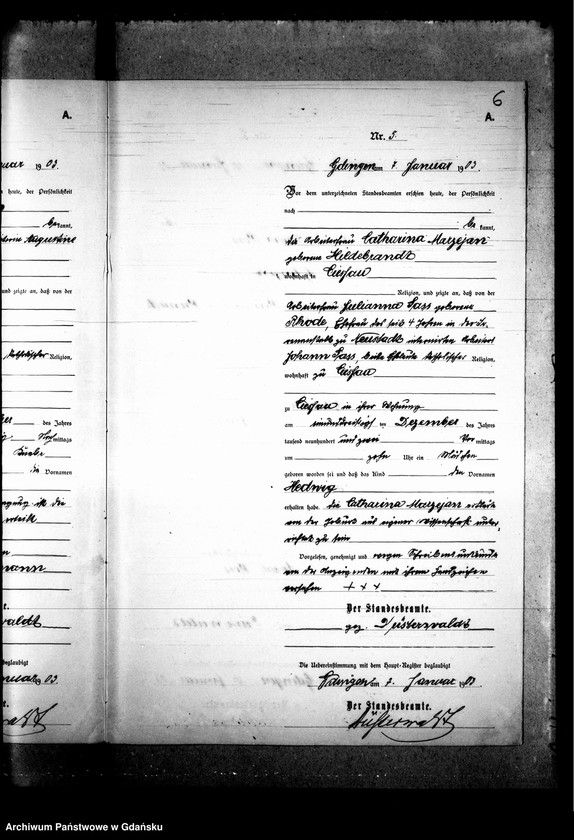 uar 1903.
n heute, der Persönlichkeit
be kannt,
Augustine
und zeigte an, daß von der
katholischer Religion,
des Jahres
mittags
Vornamen
waldt
beglaubigt
1903.
A.
6
A.
Nr. 5.
Gdingen am 7. Januar 1903.
Vor dem unterzeichneten Standesbeamten erschien heute, der Persönlichkeit
nach
be kannt,
die Arbeiterfrau Catharina Marzejan
geborene Hildebrandt
wohnhaft in Ciessau
Religion, und zeigte an, daß von der
Arbeiterfrau Julianna Sass geborene
Rhode, Ehefrau des seit 4 Jahren in der Ir
renanstalt zu Neustadt internierten Arbeiters
Johann Sass, beide Eheleute katholischer Religion,
wohnhaft zu Ciessau
zu Ciessau in ihrer Wohnung
am einunddreißigsten Dezember des Jahres
tausend neunhundert und zwei Vor mittags
um zehn Uhr ein Mädchen
geboren worden sei und daß das Kind den Vornamen
Hedwig
erhalten habe. die Catharina Marzejan erklärte
von der Geburt aus eigener Wissenschaft unter,
richtet zu sein
Vorgelesen, genehmigt und wegen Schreibensunkunde
von der Anzeigenden mit ihrem Handzeichen
versehen + + +
Der Standesbeamte.
gez. Düsterwaldt
Die Uebereinstimmung mit dem Haupt-Register beglaubigt
Gdingen am 7. Januar 1903
Der Standesbeamte.
Düsterwaldt
Archiwum Państwowe w Gdańsku